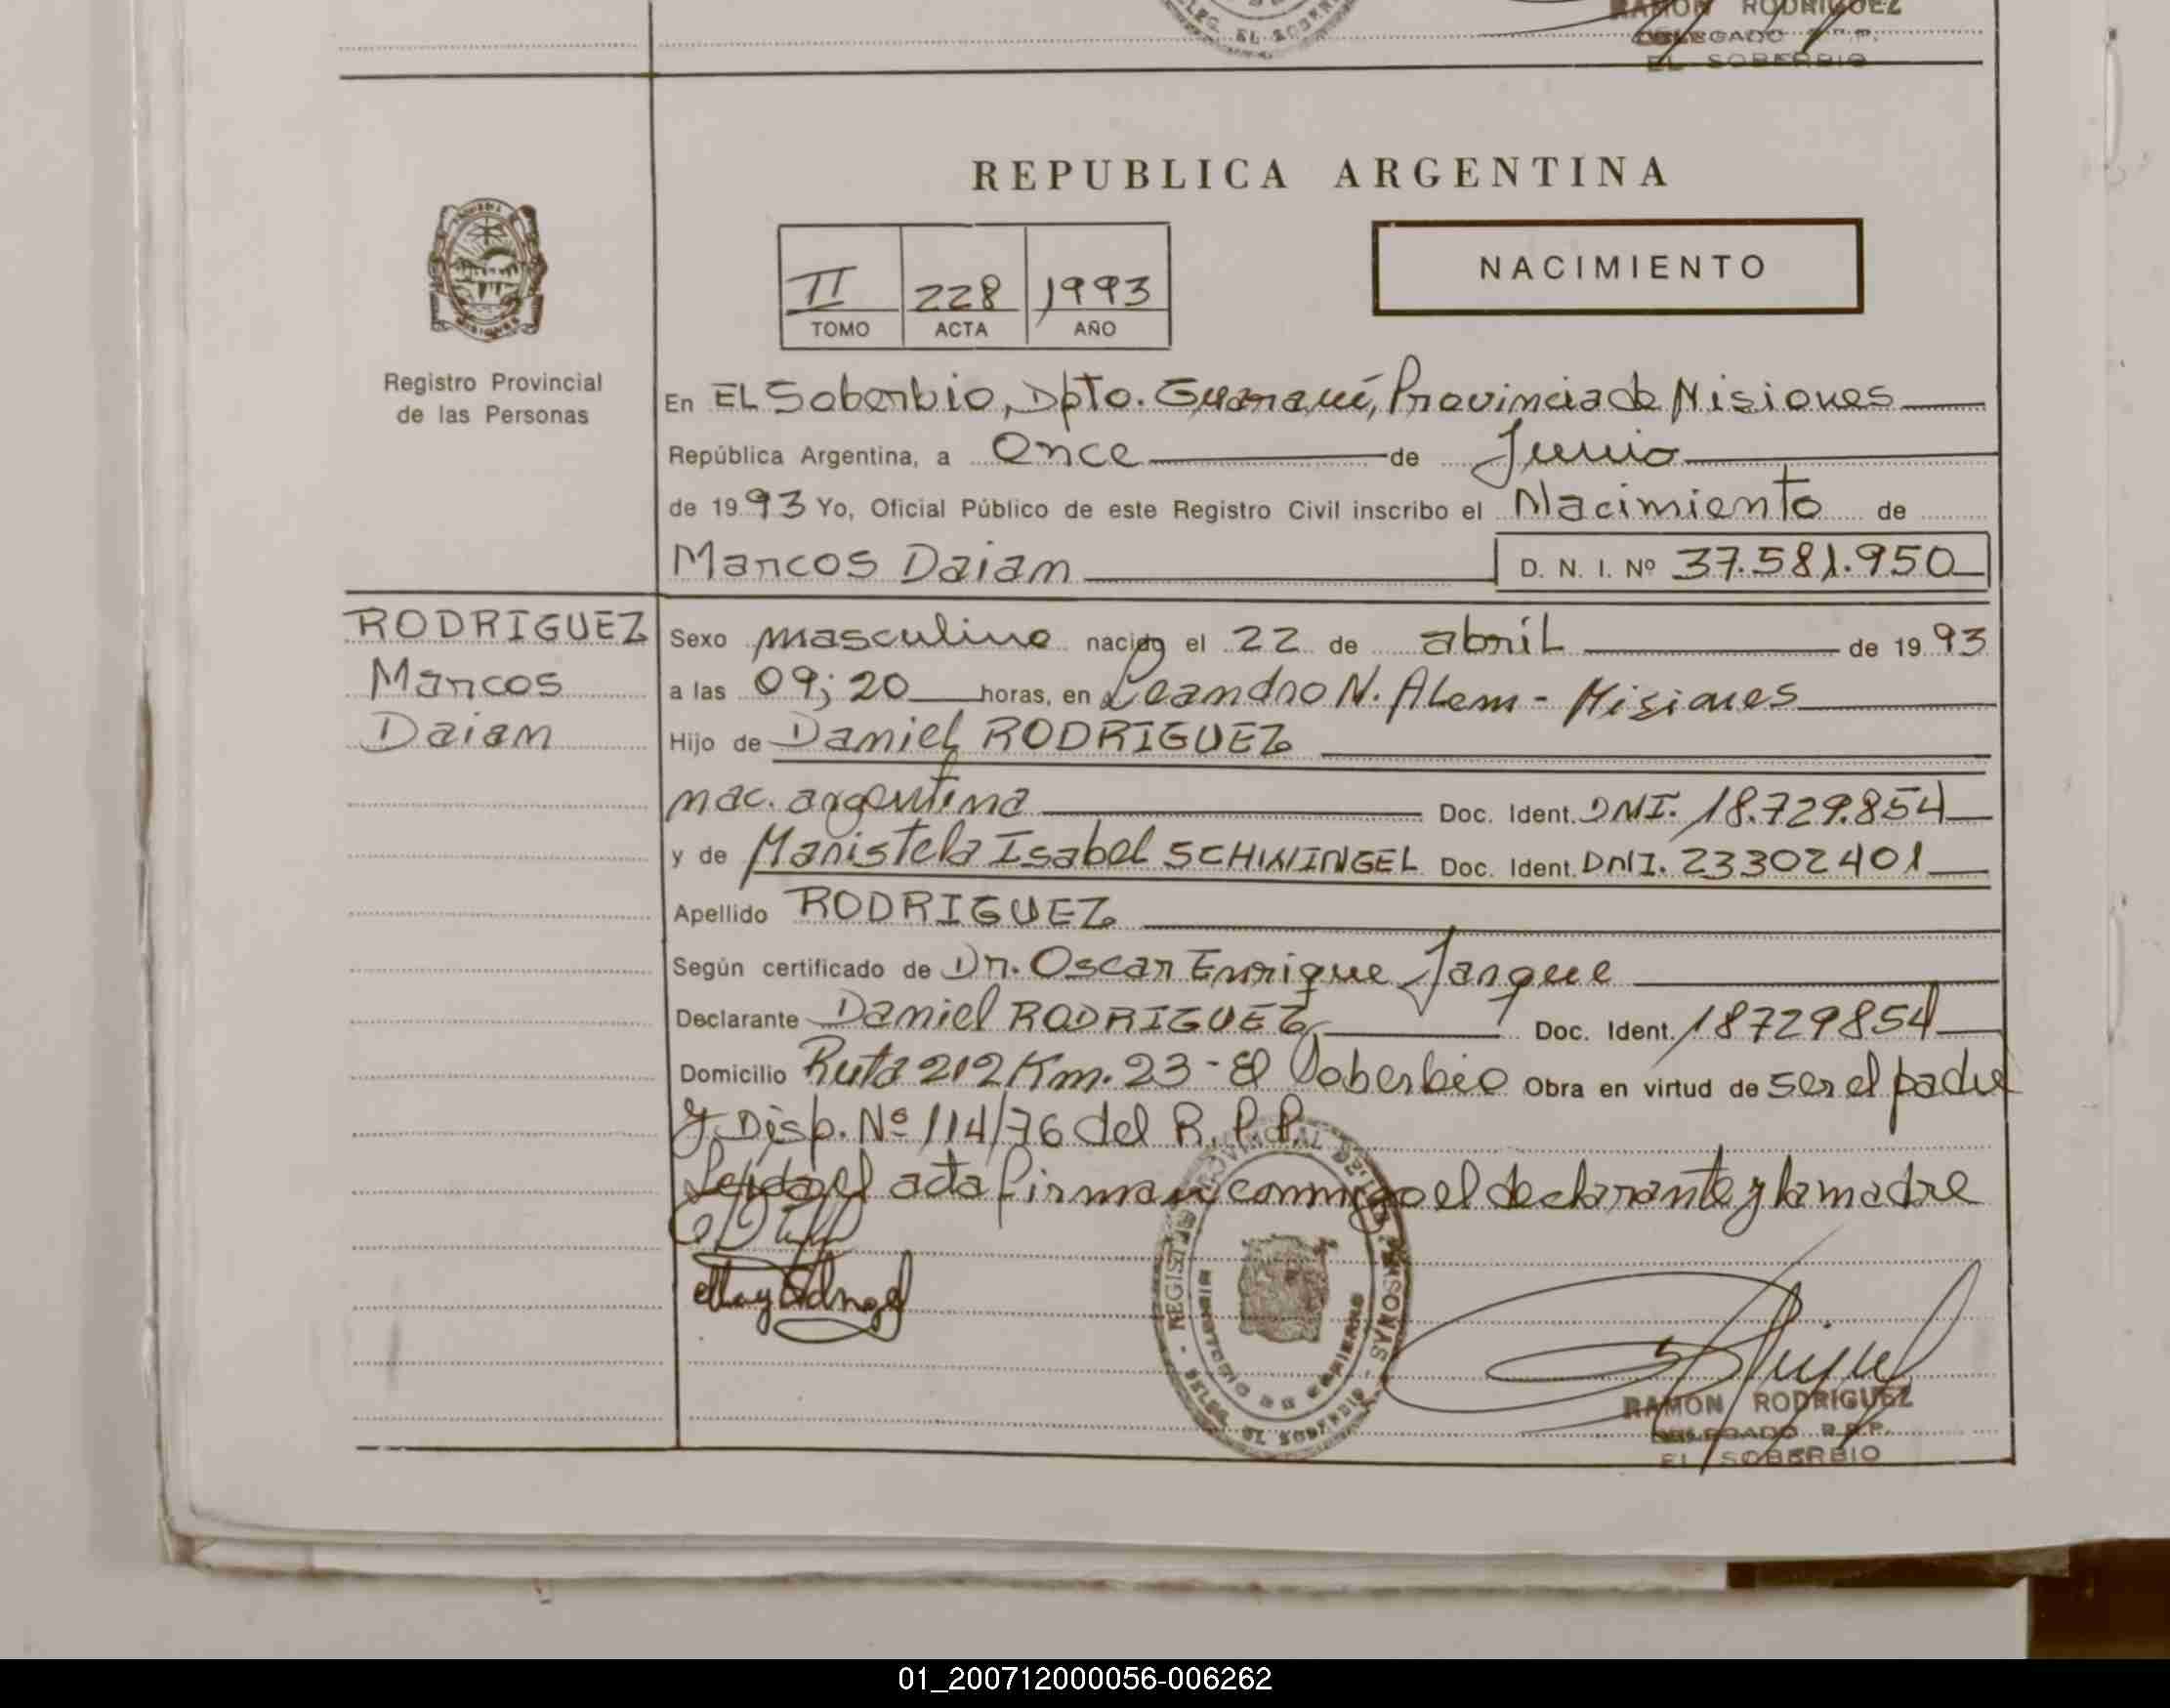 RAMON RODRIGUEZ
DELEGADO R.P.P.
EL SOBERBIO
REPUBLICA ARGENTINA
NACIMIENTO
II 228 1993
TOMO ACTA AÑO
Registro Provincial
de las Personas
En EL Soberbio, Dpto. Guaraní, Provincia de Misiones
República Argentina, a Once de Junio
de 1993 Yo, Oficial Público de este Registro Civil inscribo el Nacimiento de
Marcos Daian D. N. I. Nº 37.581.950
RODRIGUEZ
Marcos
Daian
Sexo masculino nacido el 22 de abril de 1993
a las 09;20 horas, en Leandro N. Alem - Misiones
Hijo de Daniel RODRIGUEZ
nac. argentina Doc. Ident. DNI. 18.729.854
y de Maristela Isabel SCHWINGEL Doc. Ident. DNI. 23302401
Apellido RODRIGUEZ
Según certificado de Dr. Oscar Enrique Jarque
Declarante Daniel RODRIGUEZ Doc. Ident. 18729854
Domicilio Ruta 212 Km. 23 - El Soberbio Obra en virtud de ser el padre
y Disp. Nº 114/76 del R.P.P.
Leida el acta firman conmigo el declarante y la madre
REGISTRO PROVINCIAL DE LAS PERSONAS - DELEG. EL SOBERBIO -
RAMON RODRIGUEZ
DELEGADO R.P.P.
EL SOBERBIO
01_200712000056-006262